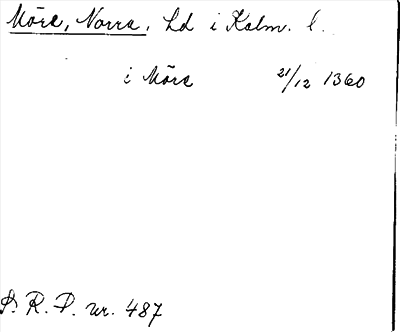 Möre, Norra, hd i Kalm. l.
i Möre 21/12 1360
S. R. P. nr. 487